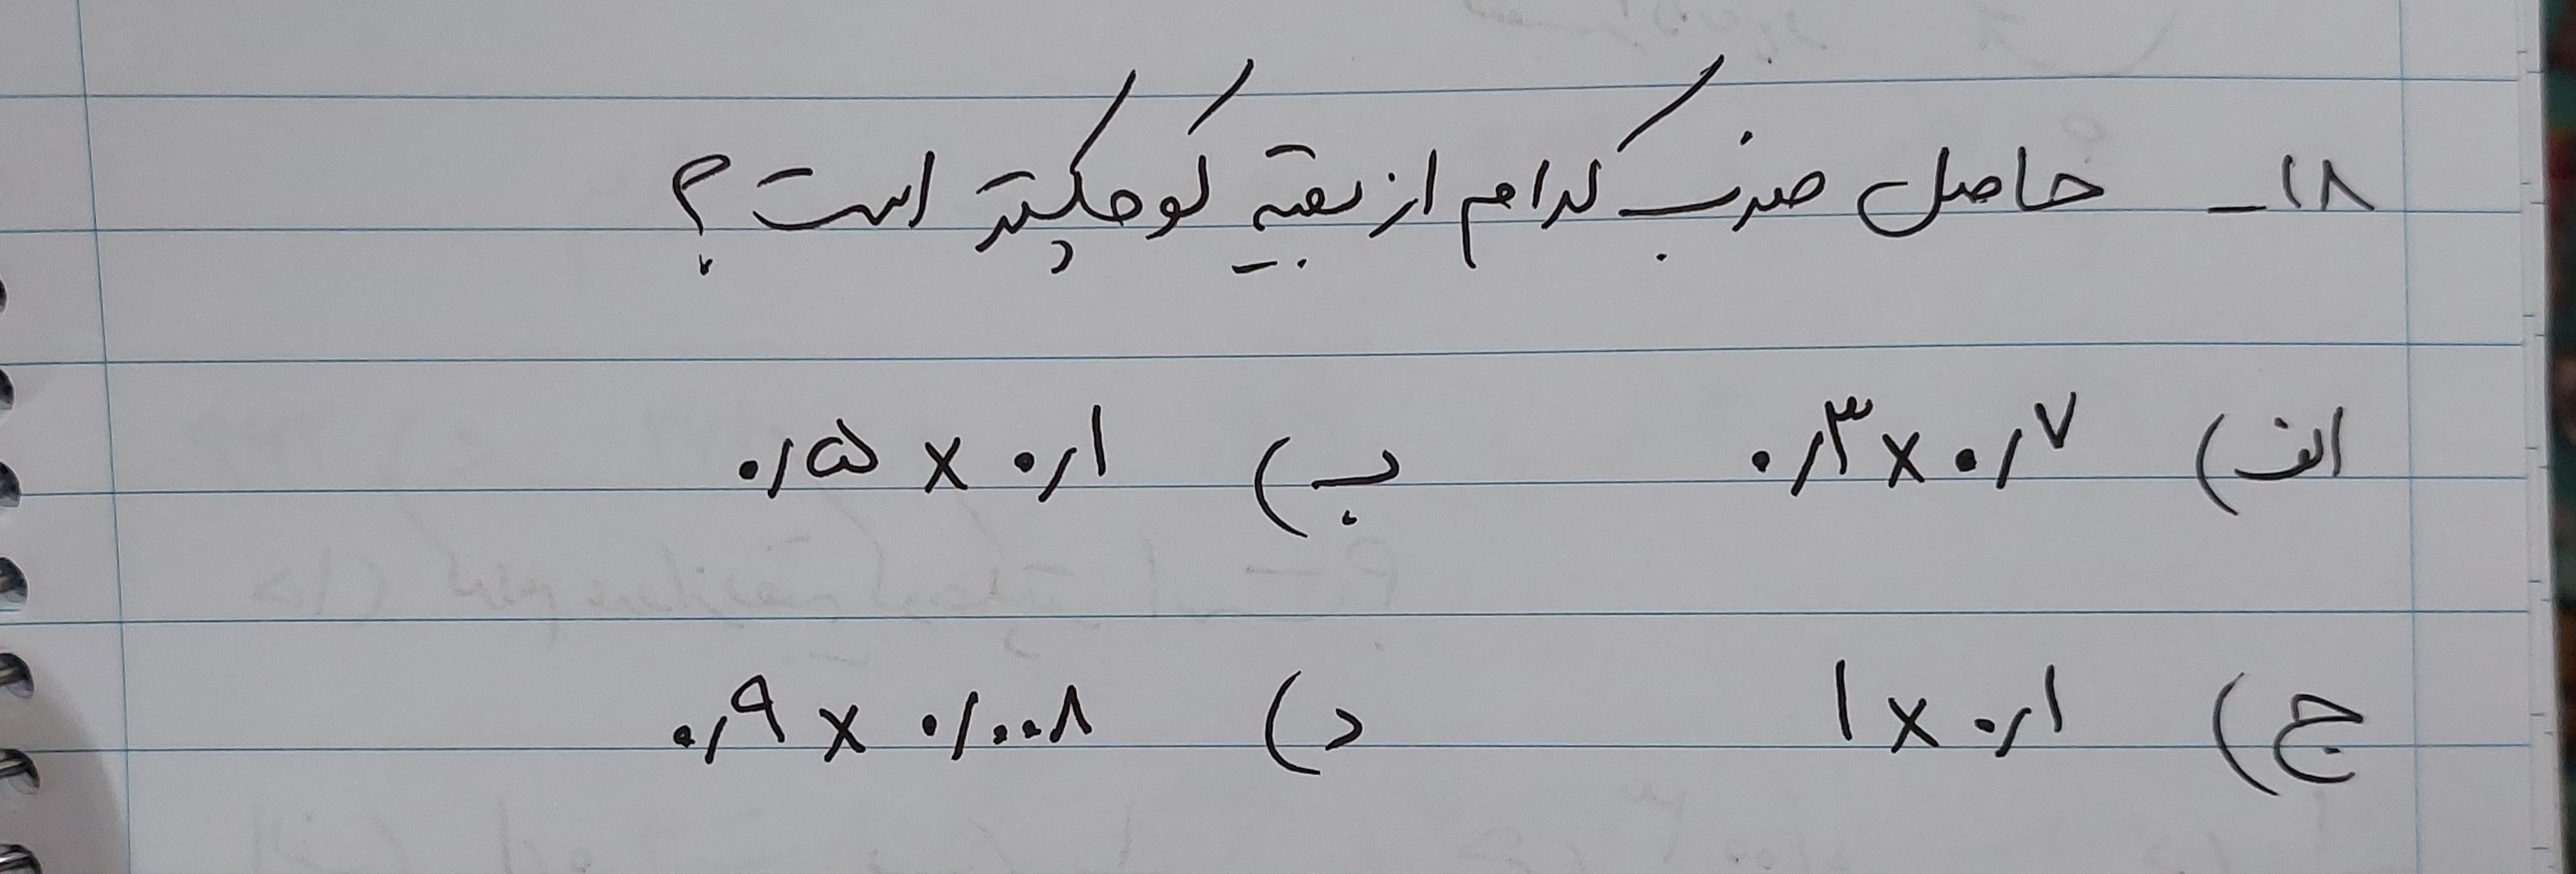 ۱۸- حاصل ضرب کدام از بقیه کوچکتر است؟
الف) ۰/۳ × ۰/۷ ب) ۰/۵ × ۰/۱
ج) ۱ × ۰/۱ د) ۰/۹ × ۰/۰۰۸